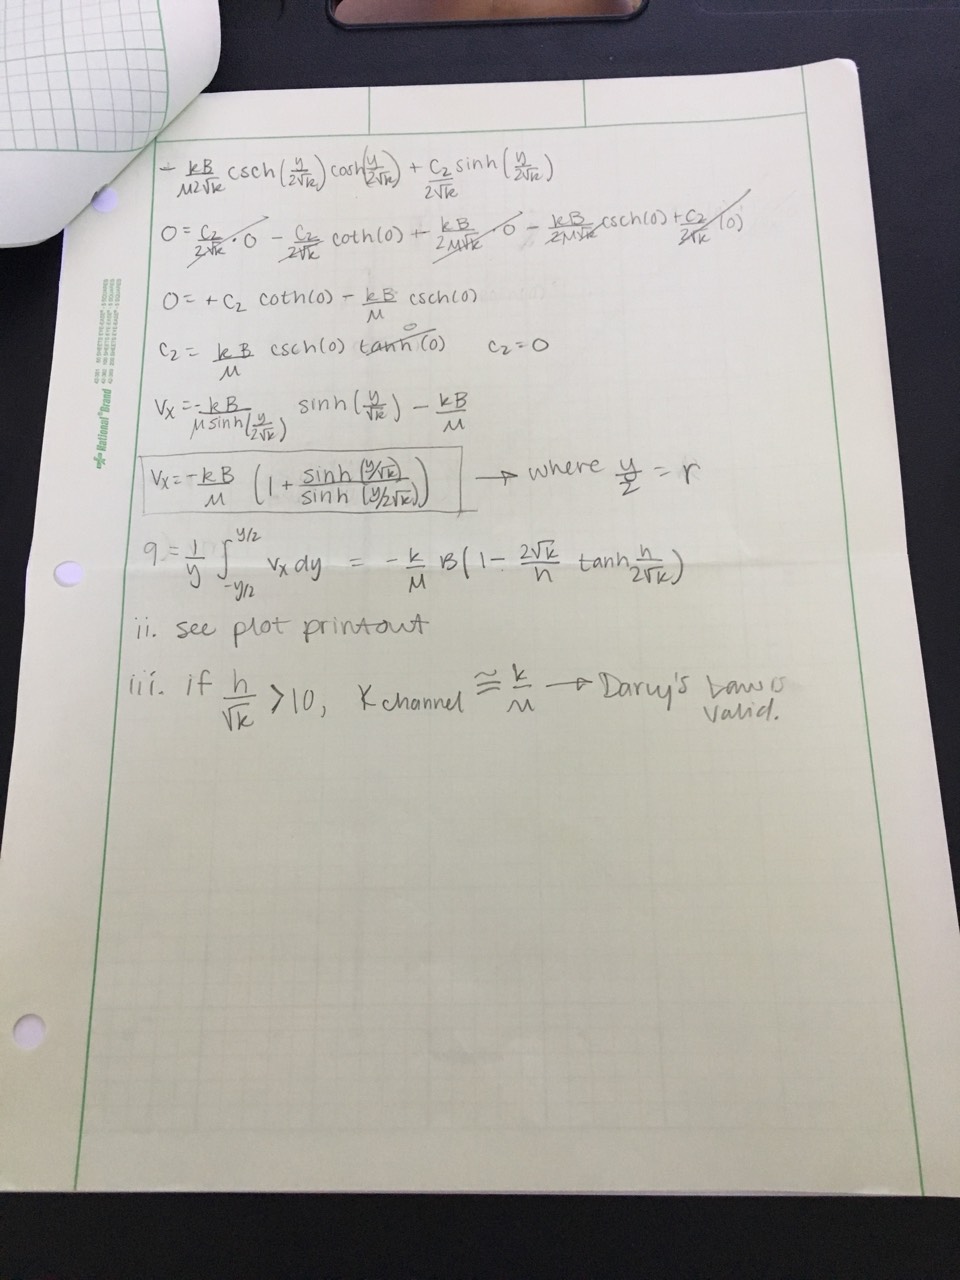 - kB/μ2√k csch(y/2√k) cosh(y/2√k) + C₂/2√k sinh(y/2√k)
0 = C₂/2√k · 0 - C₂/2√k coth(0) + kB/2μ√k · 0 - kB/2μ√k csch(0) + C₂/2√k (0)
0 = + C₂ coth(0) - kB/μ csch(0)
C₂ = kB/μ csch(0) tanh(0) 0 C₂ = 0
Vx = -kB/μ sinh(y/2√k) sinh(y/√k) - kB/μ
Vx = -kB/μ (1 + sinh(y/√k)/sinh(y/2√k)) → where y/2 = r
q = 1/y ∫_{-y/2}^{y/2} Vx dy = - k/μ B(1 - 2√k/h tanh h/2√k)
ii. see plot printout
iii. if h/√k > 10, K channel ≅ k/μ → Darcy's Law is
valid.
National Brand